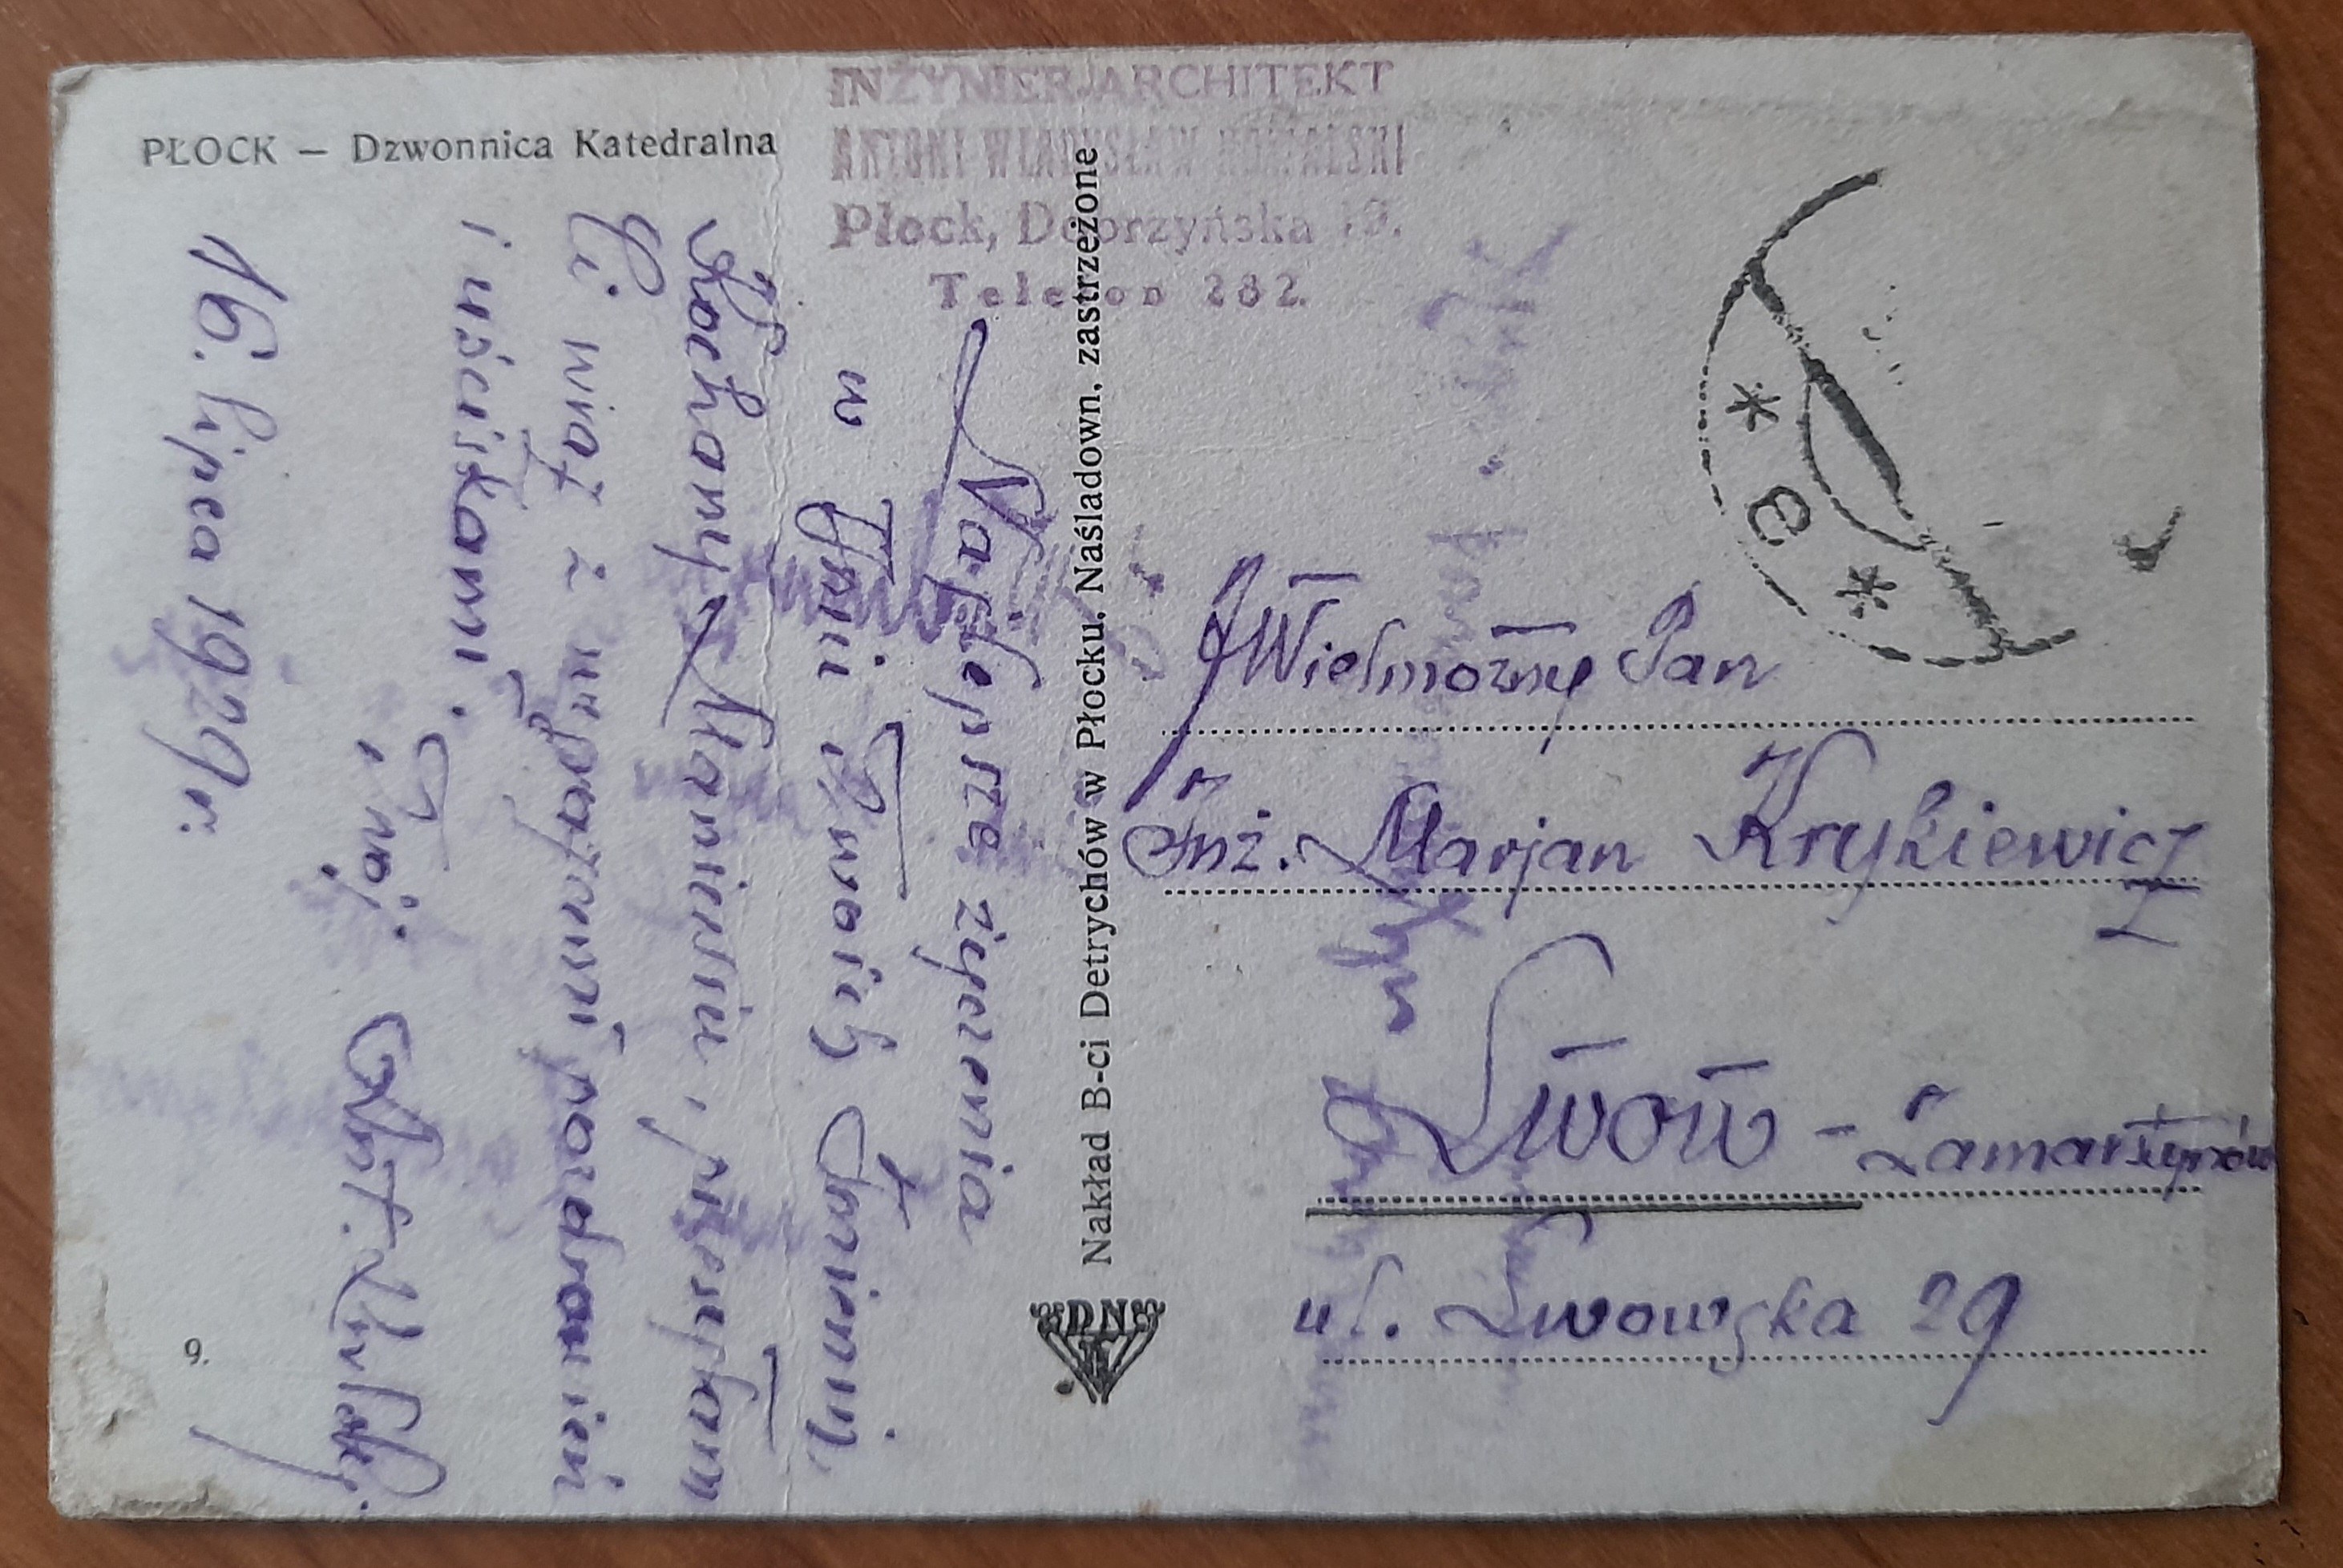 PŁOCK — Dzwonnica Katedralna
INŻYNIER ARCHITEKT
ANTONI WŁADYSŁAW KOWALSKI
Płock, Dobrzyńska 19.
Telefon 282.
Najlepsze życzenia
w Dniu Twoich Imienin,
Kochany Maniusiu, przesyłam
Ci wraz z uprzejmemi pozdrowień
i uściskami.
Twój. Ant.
16. lipca 1929 r.
9.
Nakład B-ci Detrychów w Płocku. Naśladown. zastrzeżone
DN
* e *
Wielmożny Pan
Inż. Marjan Krykiewicz
Lwów - Zamarstynów
ul. Lwowska 29